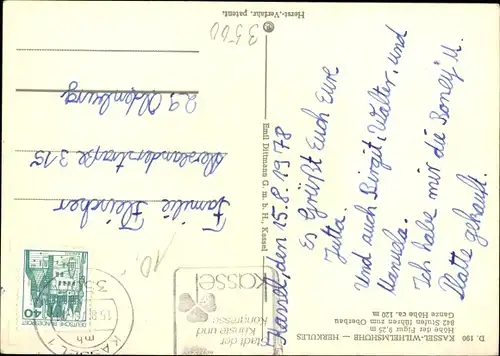 D. 190 KASSEL-WILHELMSHÖHE - HERKULES
Höhe der Figur 9,25 m
842 Stufen führen zum Oberbau
Ganze Höhe ca. 120 m
Kassel, den 15.8.1978
Es Grüßt Euch Eure
Jutta.
Und auch Birgit, Walter, und
Manuela.
Ich habe mir die Boney M.
Platte gekauft.
Emil Dittmann G. m. b. H., Kassel
Herst.-Verfahr. patent.
3500
Kassel
Stadt der
Künste und
Kongresse
35
KASSEL 1
mh
DEUTSCHE BUNDESPOST
40
10,
Familie Fleischer
straße 315
29 Oldenburg